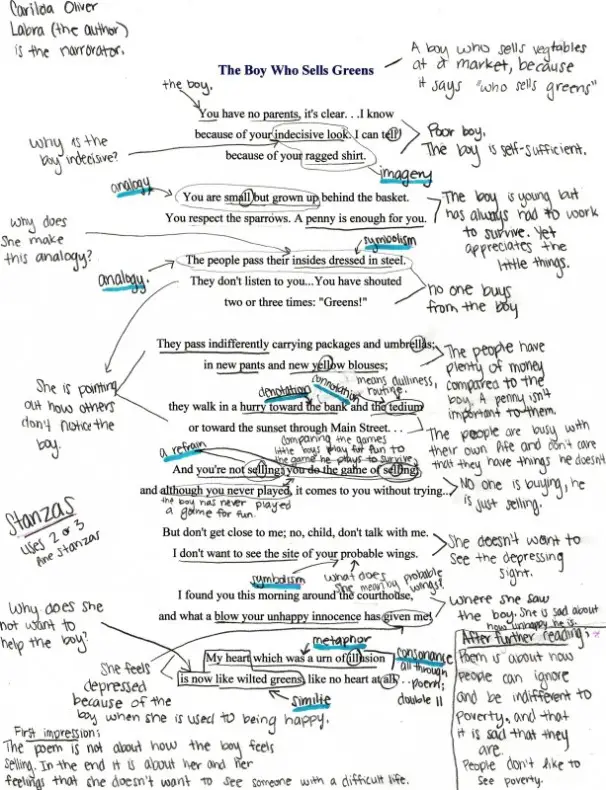 Carilda Oliver
Labra (the author)
is the narrorator.
The Boy Who Sells Greens
A boy who sells vegtables
at a market, because
it says "who sells greens"
the boy.
You have no parents, it's clear. . .I know
because of your indecisive look. I can tell
because of your ragged shirt.
Why is the
boy indecisive?
Poor boy.
The boy is self-sufficient.
imagery
analogy
You are small but grown up behind the basket.
You respect the sparrows. A penny is enough for you.
The boy is young but
has always had to work
to survive. Yet
appreciates the
little things.
Why does
she make
this analogy?
symbolism
The people pass their insides dressed in steel.
analogy.
They don't listen to you...You have shouted
two or three times: "Greens!"
no one buys
from the boy
They pass indifferently carrying packages and umbrellas;
in new pants and new yellow blouses;
The people have
plenty of money
compared to the
boy. A penny isn't
important to them.
denotation
connotation
means dullness,
routine.
they walk in a hurry toward the bank and the tedium
or toward the sunset through Main Street. . .
She is pointing
out how others
don't notice the
boy.
The people are busy with
their own life and don't care
that they have things he doesn't
a refrain
comparing the games
little boys play for fun to
the game he plays to survive
And you're not selling; you do the game of selling;
and although you never played, it comes to you without trying...
the boy has never played
a game for fun.
No one is buying, he
is just selling.
Stanzas
uses 2 or 3
line stanzas
But don't get close to me; no, child, don't talk with me.
I don't want to see the site of your probable wings.
She doesn't want to
see the depressing
sight.
symbolism
what does
she mean by probable
wings?
I found you this morning around the courthouse,
and what a blow your unhappy innocence has given me!
where she saw
the boy. She is sad about
how unhappy he is.
Why does she
not want to
help the boy?
metaphor
My heart which was a urn of illusion
is now like wilted greens, like no heart at all. . .
consonance
all through
poem;
double ll
similie
She feels
depressed
because of the
boy when she is used to being happy.
After further reading,
Poem is about how
people can ignore
and be indifferent to
poverty, and that
it is sad that they
are.
People don't like to
see poverty.
First impression:
The poem is not about how the boy feels
selling. In the end it is about her and her
feelings that she doesn't want to see someone with a difficult life.